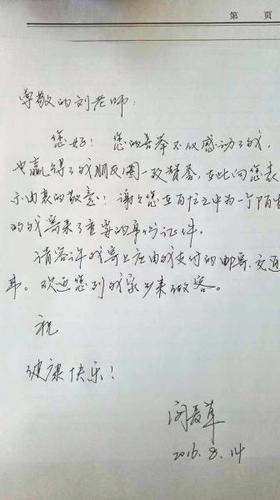 第 页
尊敬的刘老师:
您好! 您的善举不仅感动了我,
也赢得了我朋友圈一致赞答,在此向您表
示由衷的敬意! 谢谢您在百忙之中为一个陌生
的我寄来了重要的身份证件。
请容许我寄上应由我支付的邮寄、交通
费。欢迎您到我家乡来做客。
祝
健康快乐!
2016.8.14